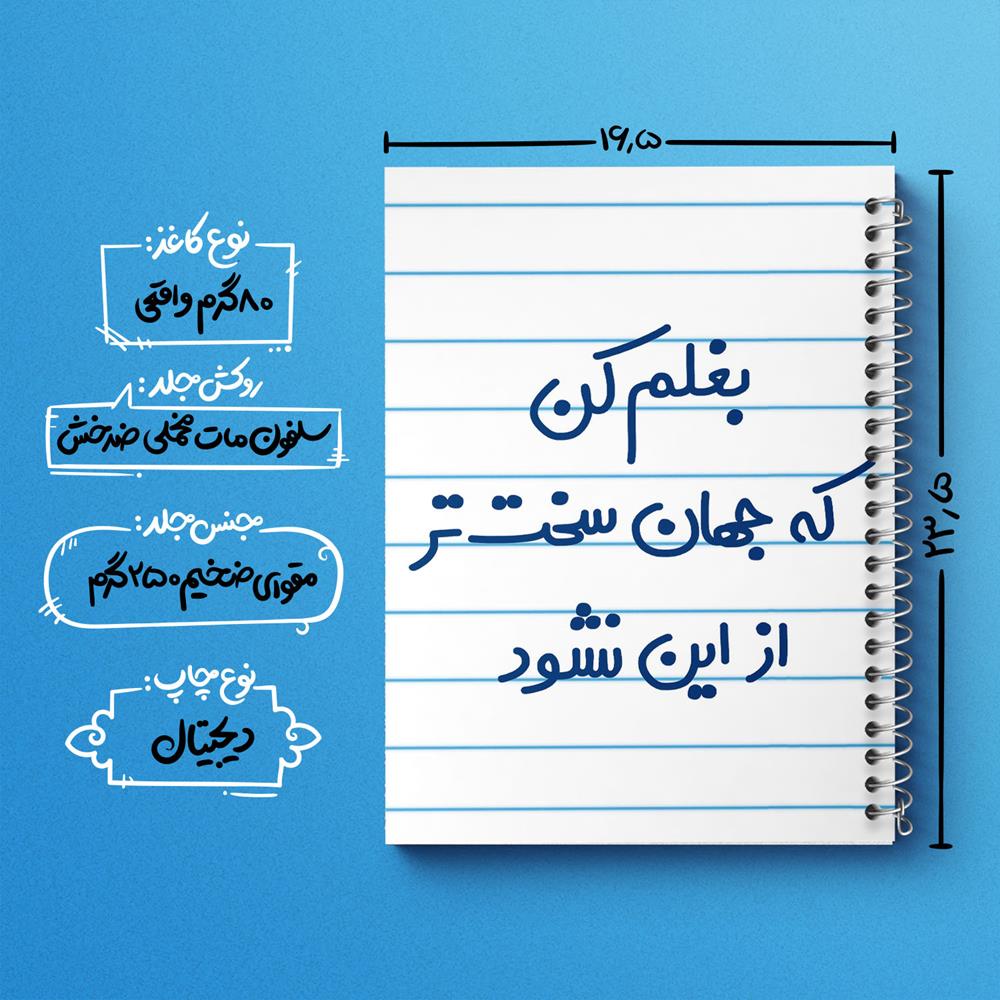 ۱۶٫۵
۲۳٫۵
بغلم کن
که جهان سخت‌تر
از این نشود
نوع کاغذ:
۸۰ گرم واقعی
روکش جلد:
سلفون مات مخملی ضدخش
جنس جلد:
مقوای ضخیم ۲۵۰ گرم
نوع چاپ:
دیجیتال